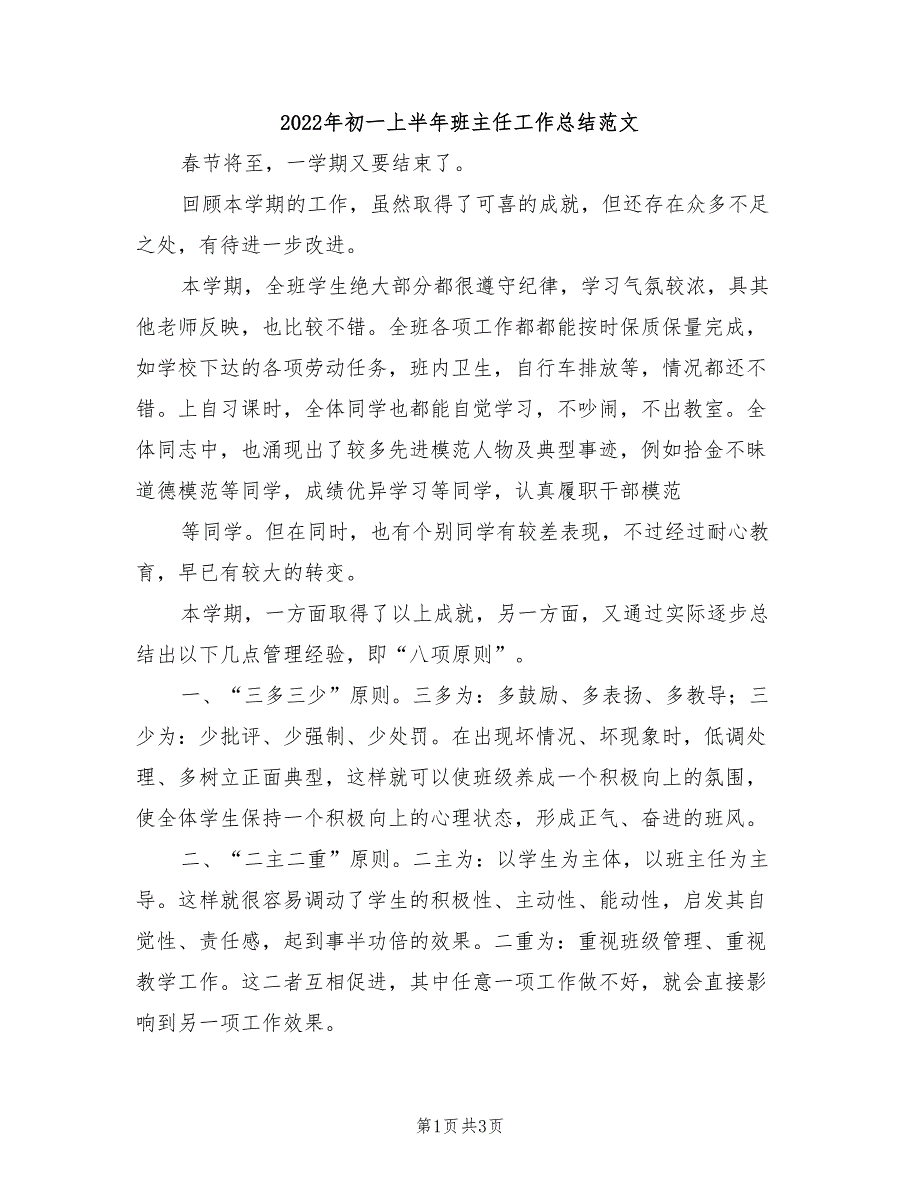 2022年初一上半年班主任工作总结范文
春节将至，一学期又要结束了。
回顾本学期的工作，虽然取得了可喜的成就，但还存在众多不足
之处，有待进一步改进。
本学期，全班学生绝大部分都很遵守纪律，学习气氛较浓，具其
他老师反映，也比较不错。全班各项工作都都能按时保质保量完成，
如学校下达的各项劳动任务，班内卫生，自行车排放等，情况都还不
错。上自习课时，全体同学也都能自觉学习，不吵闹，不出教室。全
体同志中，也涌现出了较多先进模范人物及典型事迹，例如拾金不昧
道德模范等同学，成绩优异学习等同学，认真履职干部模范
等同学。但在同时，也有个别同学有较差表现，不过经过耐心教
育，早已有较大的转变。
本学期，一方面取得了以上成就，另一方面，又通过实际逐步总
结出以下几点管理经验，即“八项原则”。
一、“三多三少”原则。三多为：多鼓励、多表扬、多教导；三
少为：少批评、少强制、少处罚。在出现坏情况、坏现象时，低调处
理、多树立正面典型，这样就可以使班级养成一个积极向上的氛围，
使全体学生保持一个积极向上的心理状态，形成正气、奋进的班风。
二、“二主二重”原则。二主为：以学生为主体，以班主任为主
导。这样就很容易调动了学生的积极性、主动性、能动性，启发其自
觉性、责任感，起到事半功倍的效果。二重为：重视班级管理、重视
教学工作。这二者互相促进，其中任意一项工作做不好，就会直接影
响到另一项工作效果。
第1页 共3页